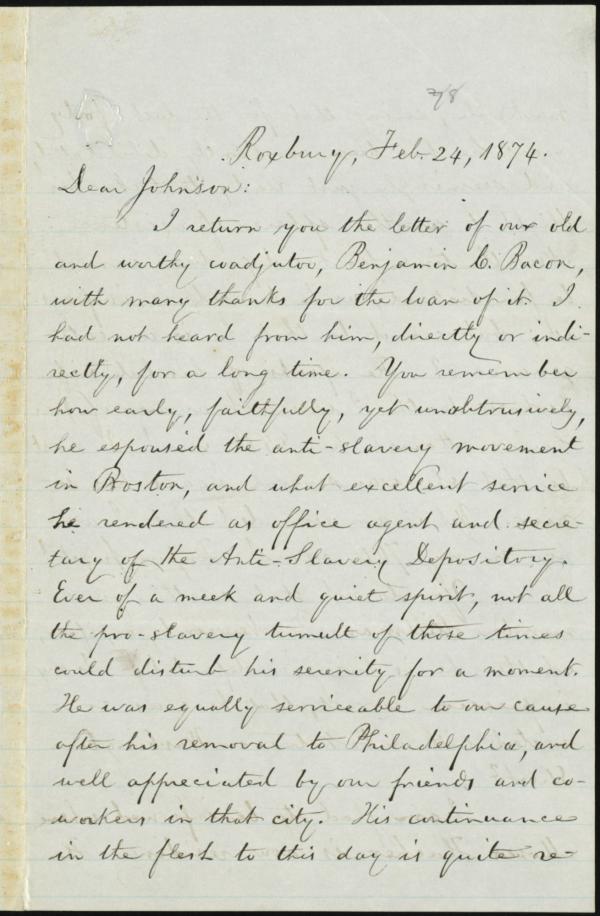 78
Roxbury, Feb. 24, 1874.
Dear Johnson:
I return you the letter of our old
and worthy coadjutor, Benjamin C. Bacon,
with many thanks for the loan of it. I
had not heard from him, directly or indi-
rectly, for a long time. You remember
how early, faithfully, yet unobtrusively,
he espoused the anti-slavery movement
in Boston, and what excellent service
he rendered as office agent and secre-
tary of the Anti-Slavery Depository.
Ever of a meek and quiet spirit, not all
the pro-slavery tumult of those times
could disturb his serenity for a moment.
He was equally serviceable to our cause
after his removal to Philadelphia, and
well appreciated by our friends and co-
workers in that city. His continuance
in the flesh to this day is quite re-